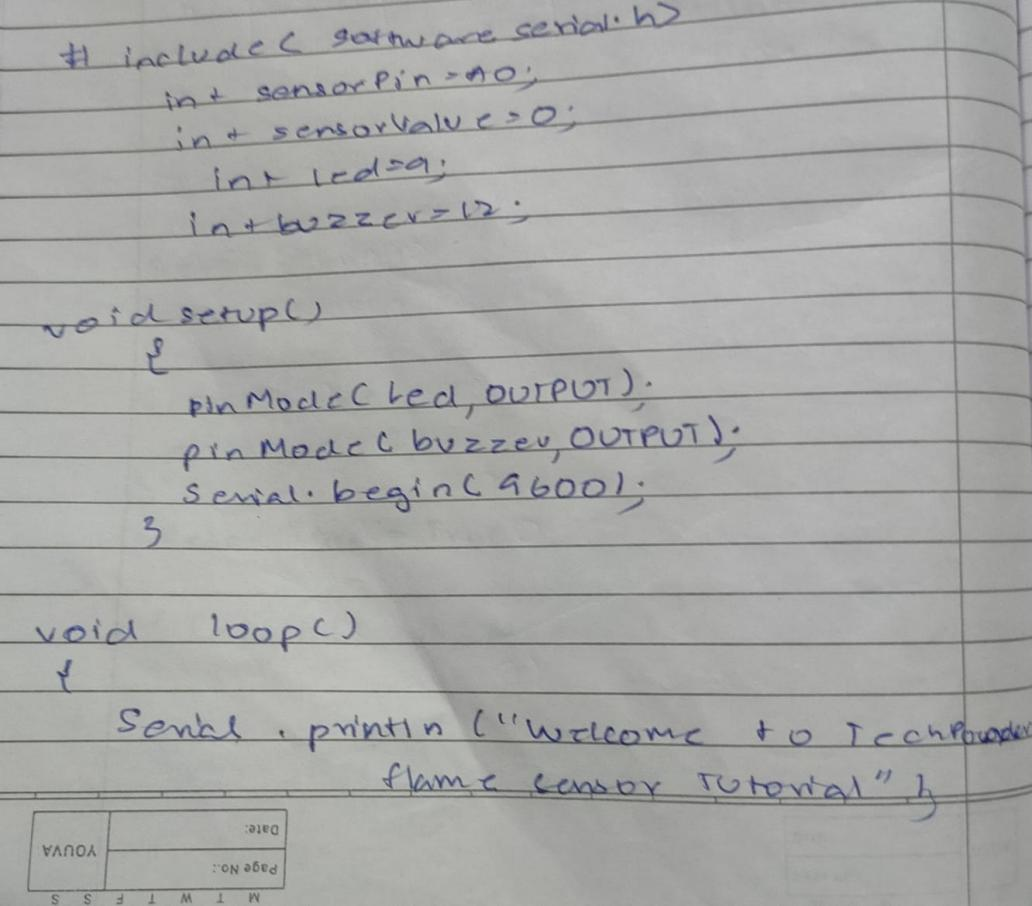 # include < software serial.h>
int sensorPin = A0;
int sensorValue = 0;
int led = 9;
int buzzer = 12;
void setup()
{
pinMode( led, OUTPUT);
pinMode( buzzer, OUTPUT);
Serial. begin( 9600);
}
void loop()
{
Serial . println ("Welcome to TechPowder
flame sensor Tutorial" );
Date:
Page No.:
YOUVA
M T W T F S S